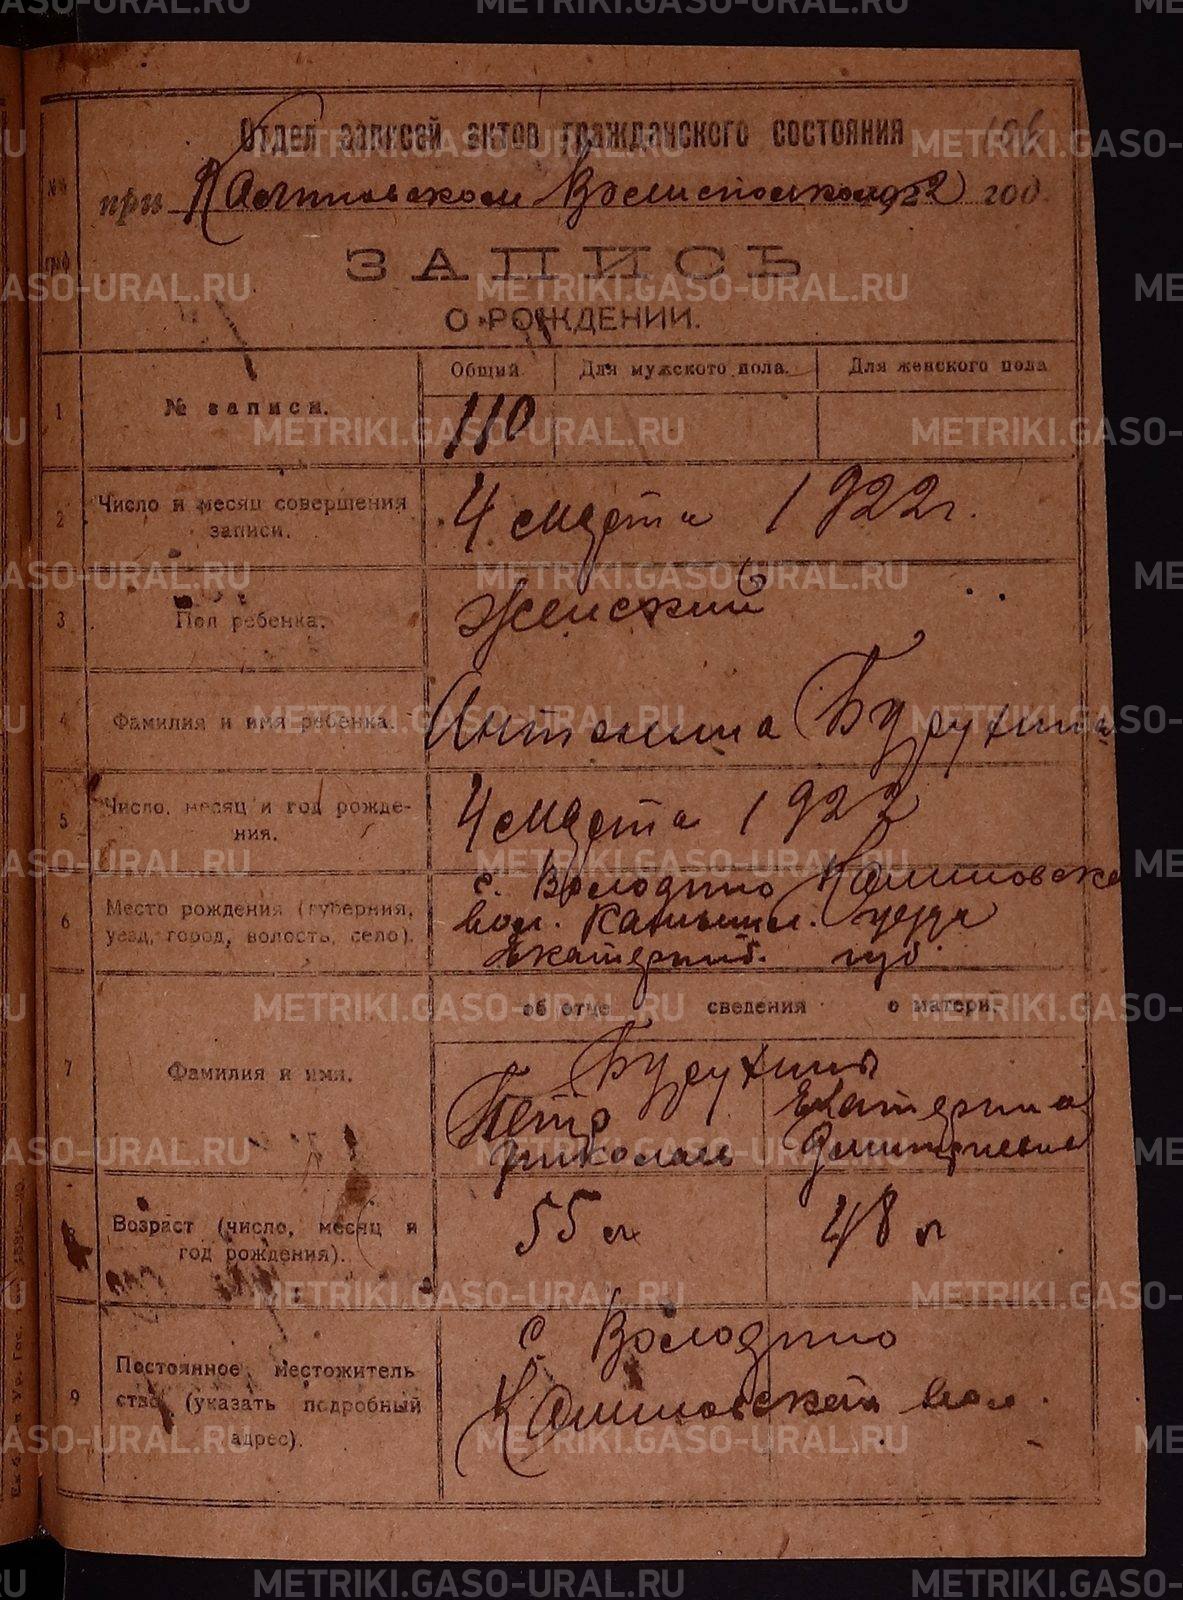 Отдел записей актов гражданского состояния 106
№№ граф
при Калиновском Волисполкоме 1922 год.
ЗАПИСЬ
О РОЖДЕНИИ.
Общий. Для мужского пола. Для женского пола
1 № записи. 110
2 Число и месяц совершения записи. 4 Марта 1922 г.
3 Пол ребенка. Женский
4 Фамилия и имя ребенка. Антонина Бурухина
5 Число, месяц и год рожде-
ния. 4 Марта 1922
6 Место рождения (губерния,
уезд, город, волость, село).
с. Володино Калиновске
вол. Камышл. уезда
Екатеринб. губ.
об отце сведения о матери.
7 Фамилия и имя.
Бурухины
Петр Екатерина
Николаев Дмитриевна
8 Возраст (число, месяц и
год рождения). 55 л 48 л
9 Постоянное местожитель
ство (указать подробный
адрес).
с Володино
Калиновской вол.
METRIKI.GASO-URAL.RU